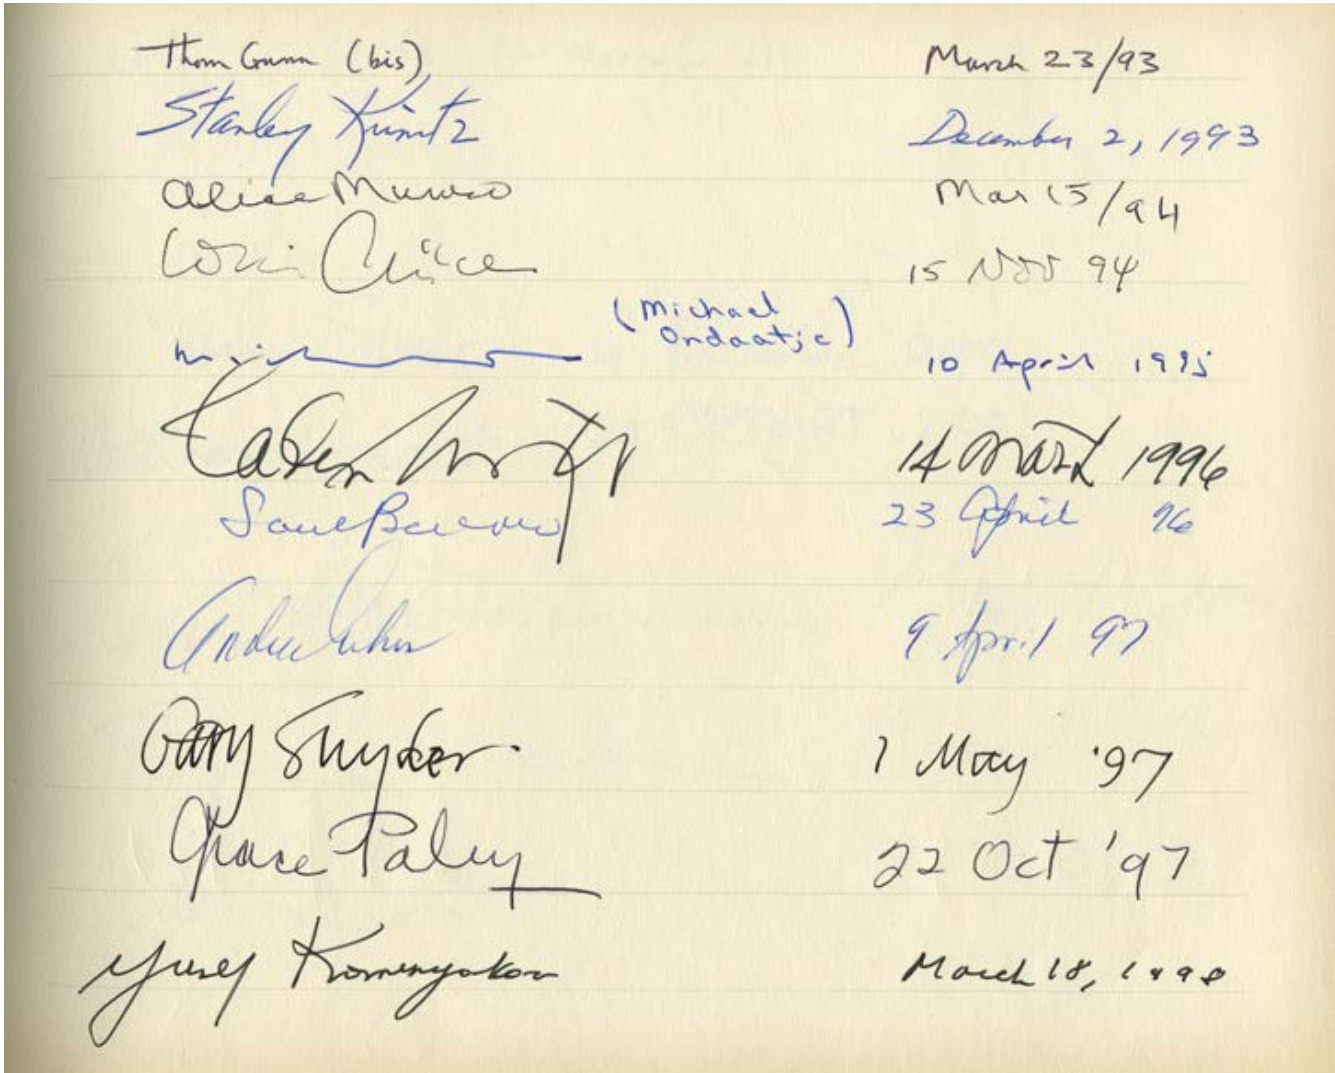 Thom Gunn (bis) March 23/93
Stanley Kunitz December 2, 1993
Alice Munro Mar 15/94
Louise Glück 15 Nov 94
(Michael
Ondaatje) 10 April 1995
14 March 1996
Saul Bellow 23 April 96
Andre Dubus 9 April 97
Gary Snyder 1 May '97
Grace Paley 22 Oct '97
Yusef Komunyakaa March 18, 1998